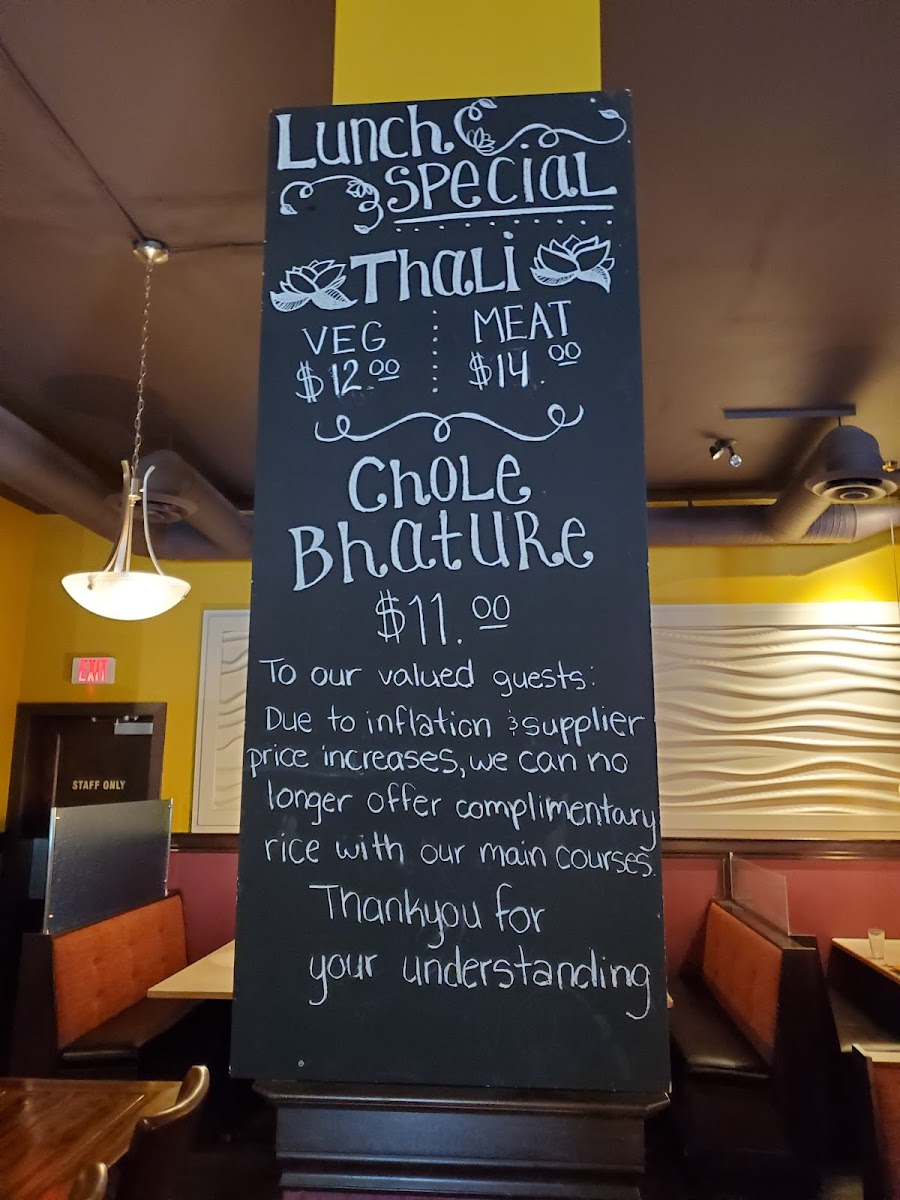 Lunch
Special
Thali
VEG MEAT
$12.00 $14.00
Chole
Bhature
$11.00
To our valued guests:
Due to inflation & supplier
price increases, we can no
longer offer complimentary
rice with our main courses.
Thankyou for
your understanding
EXIT
STAFF ONLY